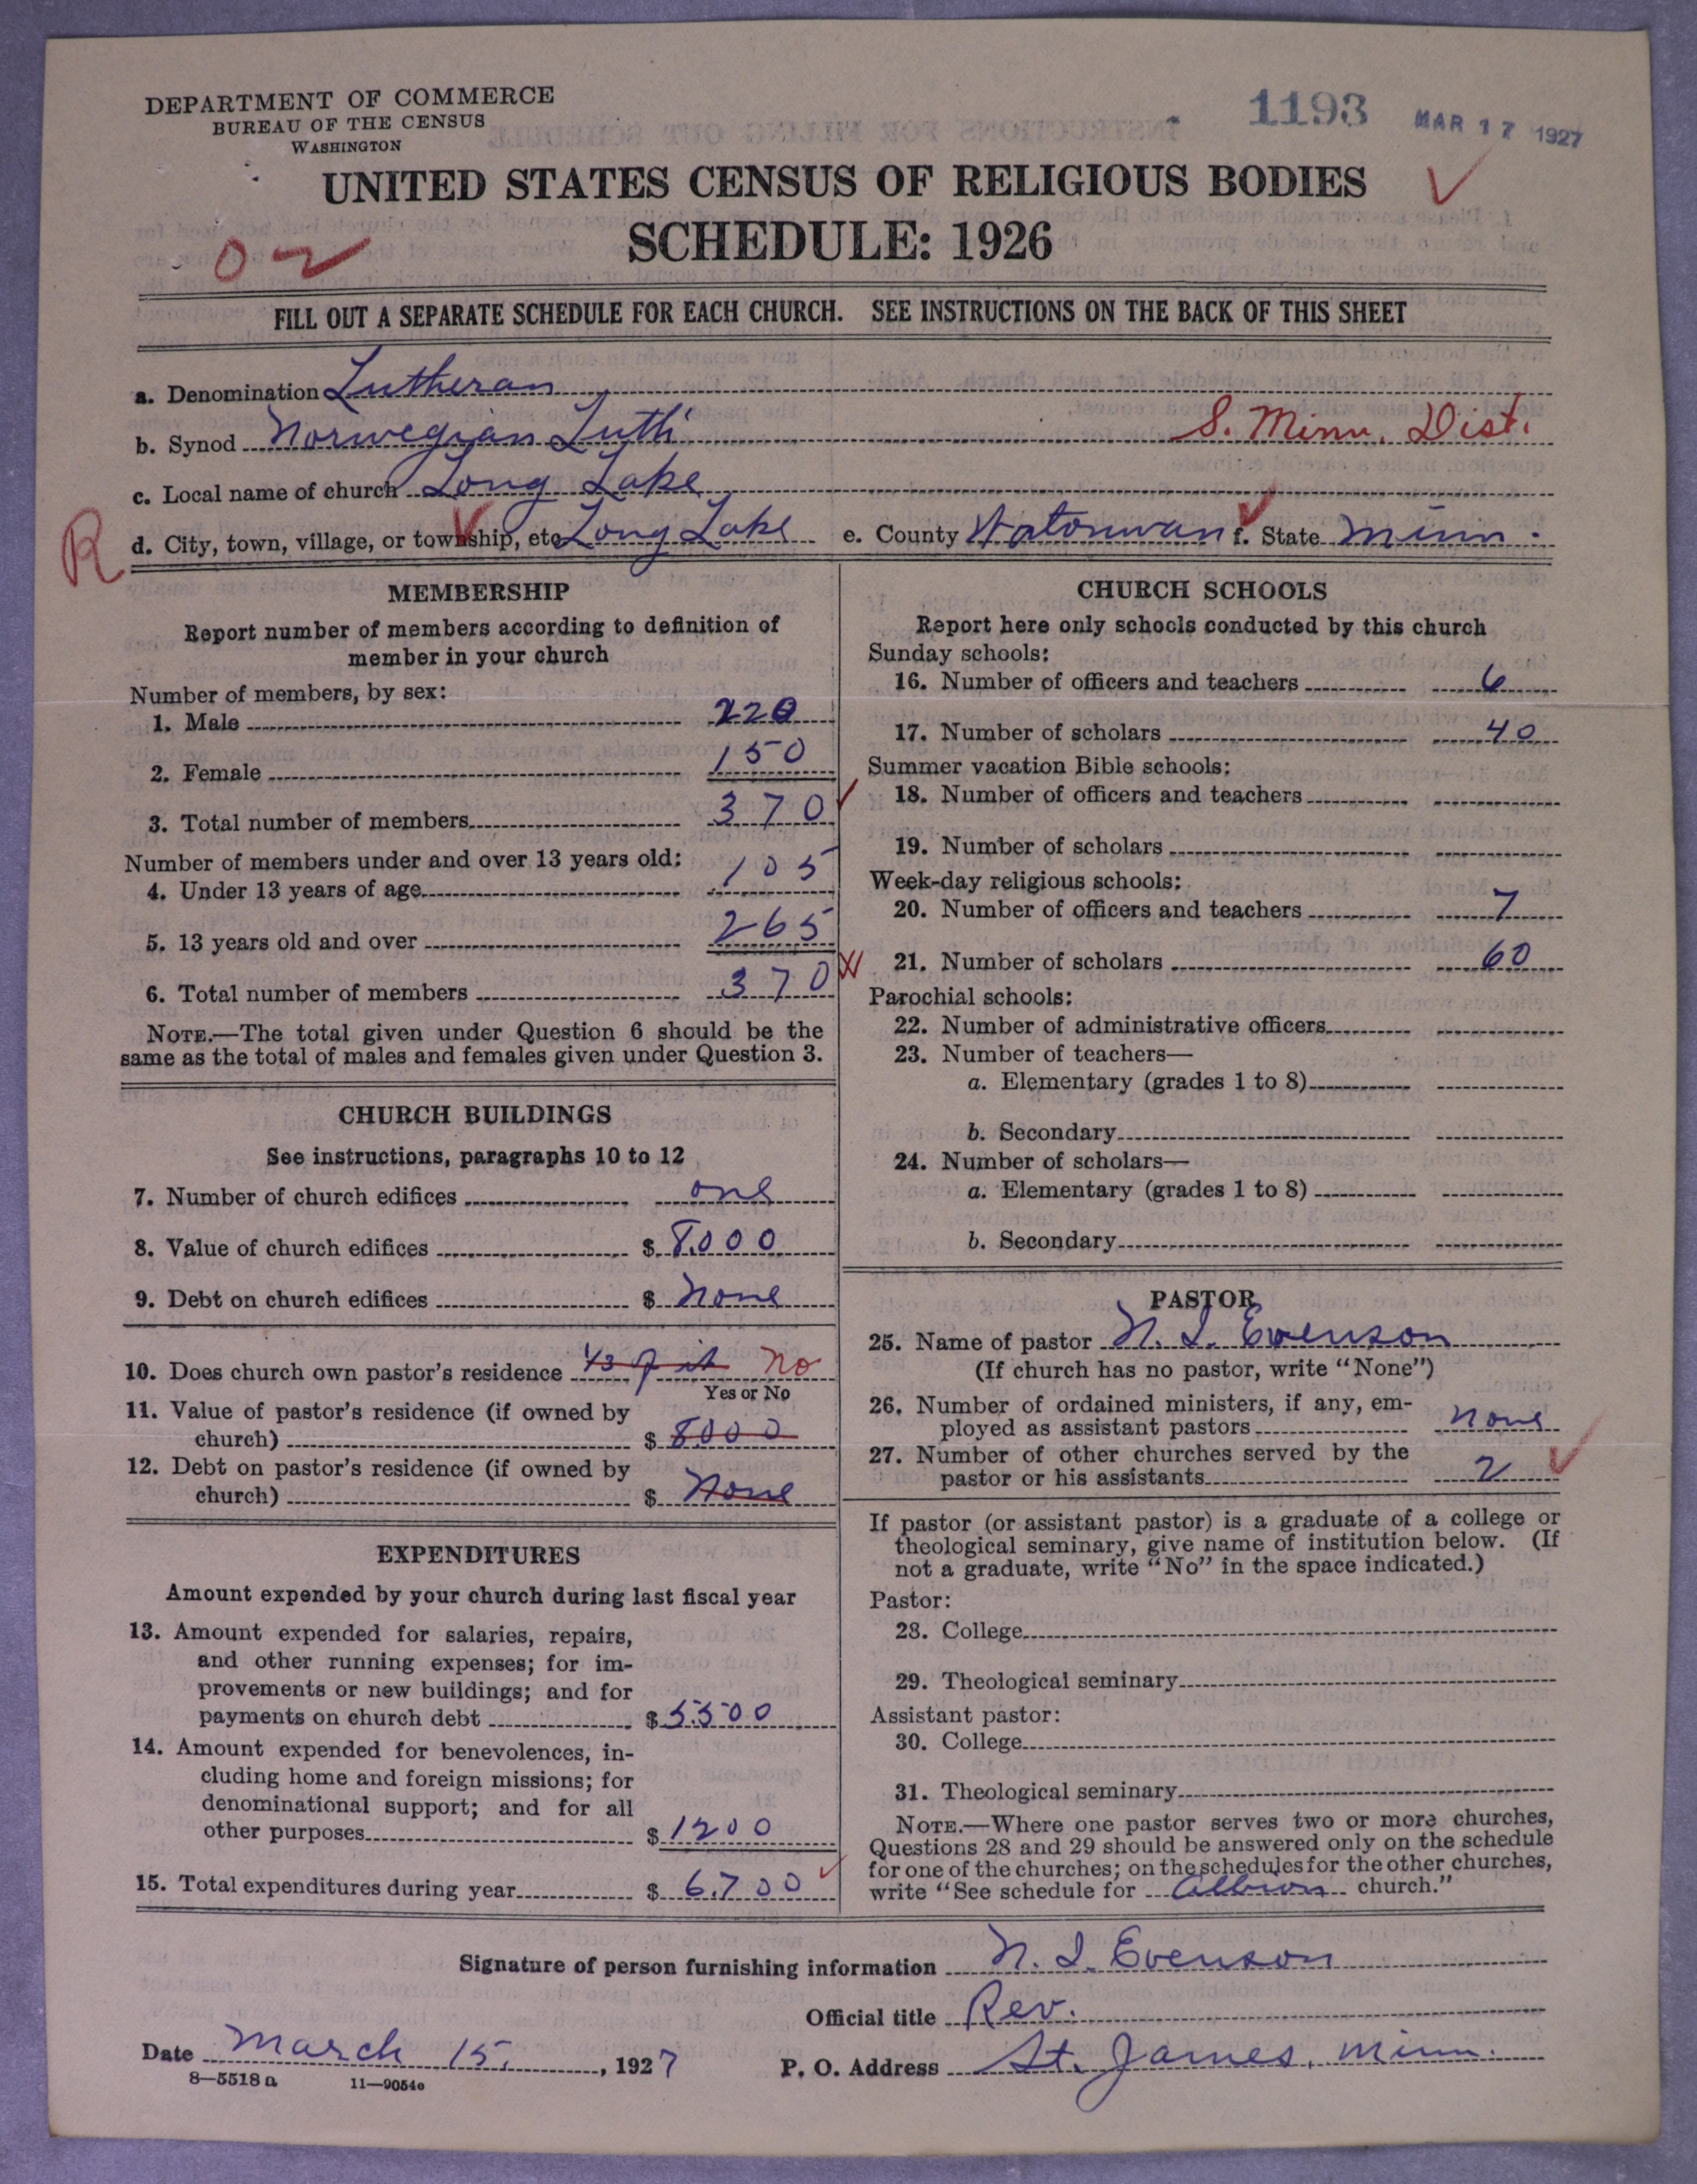 DEPARTMENT OF COMMERCE
BUREAU OF THE CENSUS
WASHINGTON
1193 MAR 17 1927
UNITED STATES CENSUS OF RELIGIOUS BODIES
SCHEDULE: 1926
FILL OUT A SEPARATE SCHEDULE FOR EACH CHURCH. SEE INSTRUCTIONS ON THE BACK OF THIS SHEET
a. Denomination Lutheran
b. Synod Norwegian Luth S. Minn. Dist.
c. Local name of church Long Lake
R d. City, town, village, or township, etc Long Lake e. County Watonwan f. State Minn.
MEMBERSHIP
Report number of members according to definition of
member in your church
Number of members, by sex:
1. Male 220
2. Female 150
3. Total number of members 370
Number of members under and over 13 years old:
4. Under 13 years of age 105
5. 13 years old and over 265
6. Total number of members 370
NOTE.—The total given under Question 6 should be the
same as the total of males and females given under Question 3.
CHURCH BUILDINGS
See instructions, paragraphs 10 to 12
7. Number of church edifices one
8. Value of church edifices $ 8000
9. Debt on church edifices $ None
10. Does church own pastor's residence 1/3 of it No
Yes or No
11. Value of pastor's residence (if owned by
church) $ 8000
12. Debt on pastor's residence (if owned by
church) $ None
EXPENDITURES
Amount expended by your church during last fiscal year
13. Amount expended for salaries, repairs,
and other running expenses; for im-
provements or new buildings; and for
payments on church debt $ 5500
14. Amount expended for benevolences, in-
cluding home and foreign missions; for
denominational support; and for all
other purposes $ 1200
15. Total expenditures during year $ 6700
CHURCH SCHOOLS
Report here only schools conducted by this church
Sunday schools:
16. Number of officers and teachers 6
17. Number of scholars 40
Summer vacation Bible schools:
18. Number of officers and teachers
19. Number of scholars
Week-day religious schools:
20. Number of officers and teachers 7
21. Number of scholars 60
Parochial schools:
22. Number of administrative officers
23. Number of teachers—
a. Elementary (grades 1 to 8)
b. Secondary
24. Number of scholars—
a. Elementary (grades 1 to 8)
b. Secondary
PASTOR
25. Name of pastor N. S. Evenson
(If church has no pastor, write "None")
26. Number of ordained ministers, if any, em-
ployed as assistant pastors none
27. Number of other churches served by the
pastor or his assistants 2
If pastor (or assistant pastor) is a graduate of a college or
theological seminary, give name of institution below. (If
not a graduate, write "No" in the space indicated.)
Pastor:
28. College
29. Theological seminary
Assistant pastor:
30. College
31. Theological seminary
NOTE.—Where one pastor serves two or more churches,
Questions 28 and 29 should be answered only on the schedule
for one of the churches; on the schedules for the other churches,
write "See schedule for Albion church."
Signature of person furnishing information N. S. Evenson
Official title Rev.
Date March 15, 1927 P. O. Address St. James, Minn.
8—5518 a 11—9054e